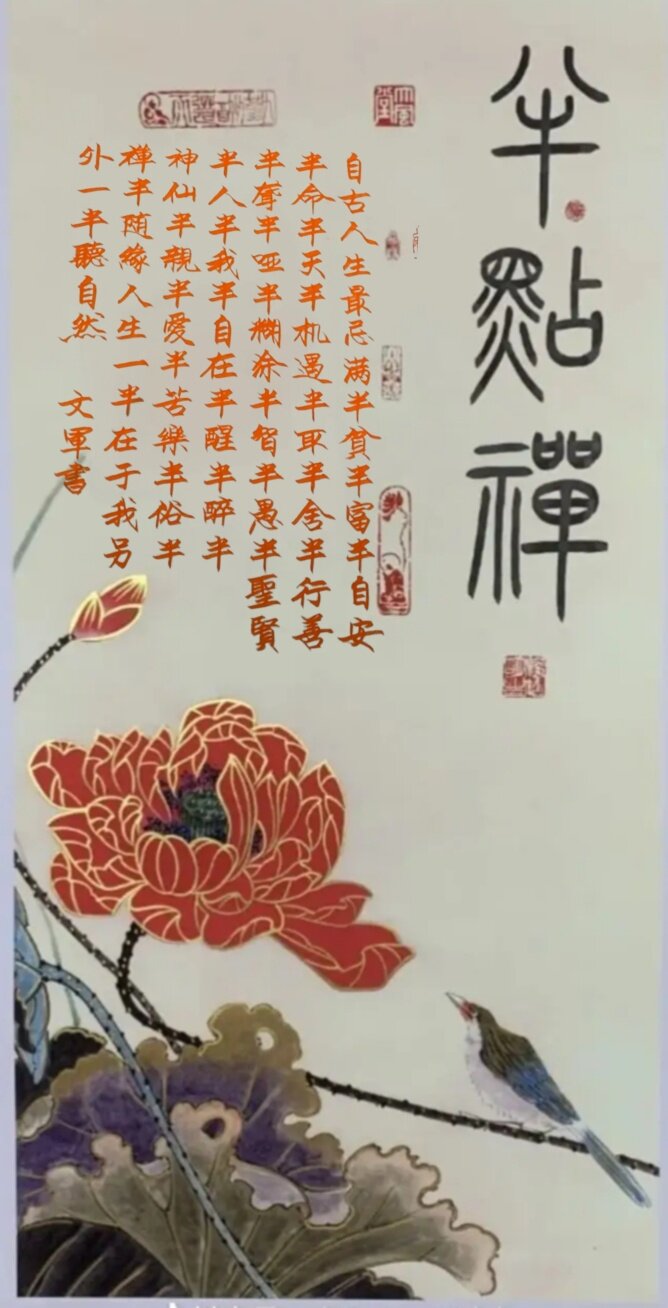 半點禪
大風堂
自古人生最忌满半貧半富半自安
半命半天半机遇半取半舍半行善
半聋半哑半糊涂半智半愚半聖賢
半人半我半自在半醒半醉半
神仙半親半愛半苦樂半俗半
禪半随緣人生一半在于我另
外一半聽自然
文軍書